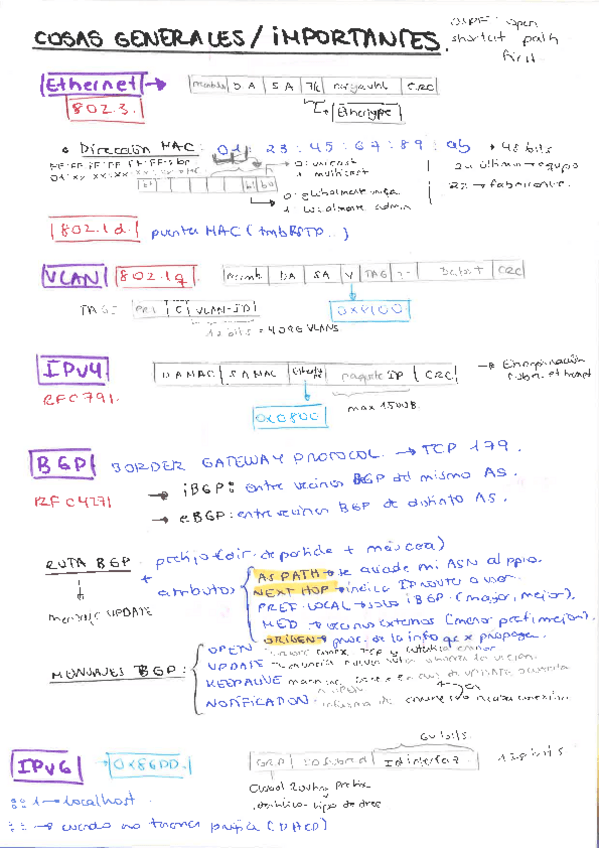 COSAS GENERALES / IMPORTANTES.
OSPF: open
shortest path
first.
Ethernet →
DA SA T/L CRC
802.3.
Ethertype
• Dirección MAC: 01: 23: 45: 67: 89: ab → 48 bits
0: unicast
1 multicast
24 último → equipo
24 → fabricante.
b1 b0
0: globalmente única
1: localmente admin
802.1d. puente MAC (tmb RSTP..)
VLAN 802.1q. DA SA V TAG CRC
TAG: PRI C VLAN-ID
12 bits = 4096 VLANS
0x8100
IPv4
RFC 791.
DA MAC SA MAC Ethertype paquete IP CRC
→ Encapsulación
sobre ethernet
0x0800
max 1500B.
BGP BORDER GATEWAY PROTOCOL → TCP 179.
RFC 4271
→ iBGP: entre vecinos BGP del mismo AS.
→ eBGP: entre vecinos BGP de distinto AS.
RUTA BGP. prefijo (dir. de partida + máscara)
+ atributos
AS PATH → se añade mi ASN al ppio.
NEXT HOP → indica IP router a usar.
PREF. LOCAL → solo iBGP. (mayor, mejor).
MED → vecinos externos (menor pref. mejor).
ORIGEN → proc. de la info que x propaga.
mensaje UPDATE
MENSAJES BGP:
OPEN
UPDATE
KEEPALIVE
NOTIFICATION: informa de
IPv6 → 0x86DD.
64 bits.
GRP ID subred Id interfaz
128 bits
Global Routing Prefix
::1 → localhost.
:: → cuando no tenemos prefijo (DHCP)